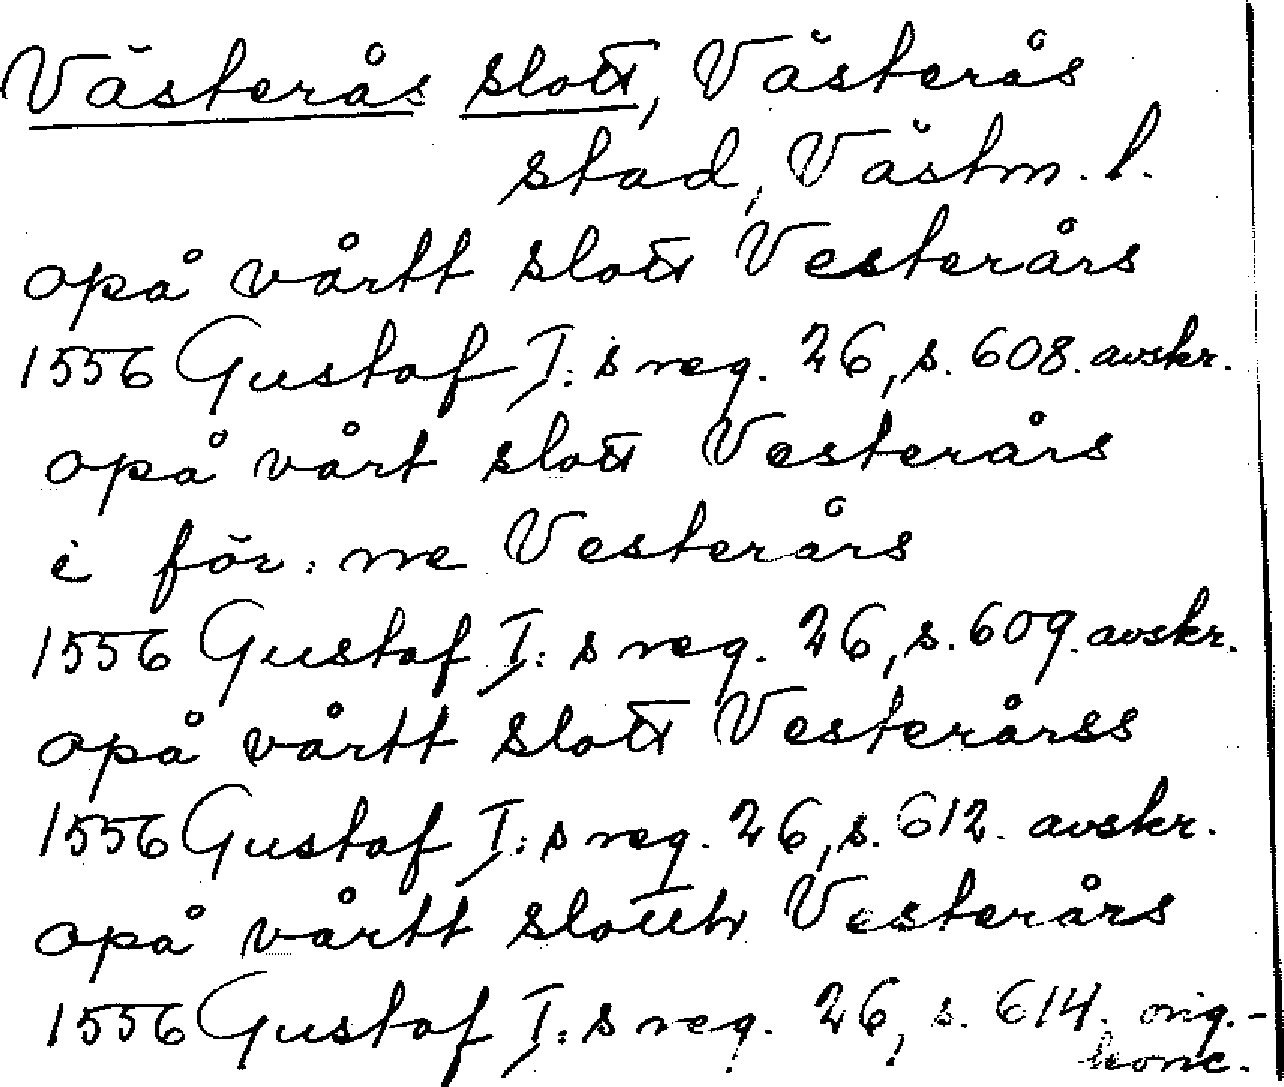 Västerås slott, Västerås
stad, Västm. l.
opå vårtt slott Vesterårs
1556 Gustaf I:s reg. 26, s. 608. avskr.
opå vårt slott Vesterårs
i för:ne Vesterårs
1556 Gustaf I:s reg. 26, s. 609. avskr.
opå vårtt slott Vesterårss
1556 Gustaf I:s reg. 26, s. 612. avskr.
opå vårtt slotth Vesterårs
1556 Gustaf I:s reg. 26, s. 614. orig.-
konc.